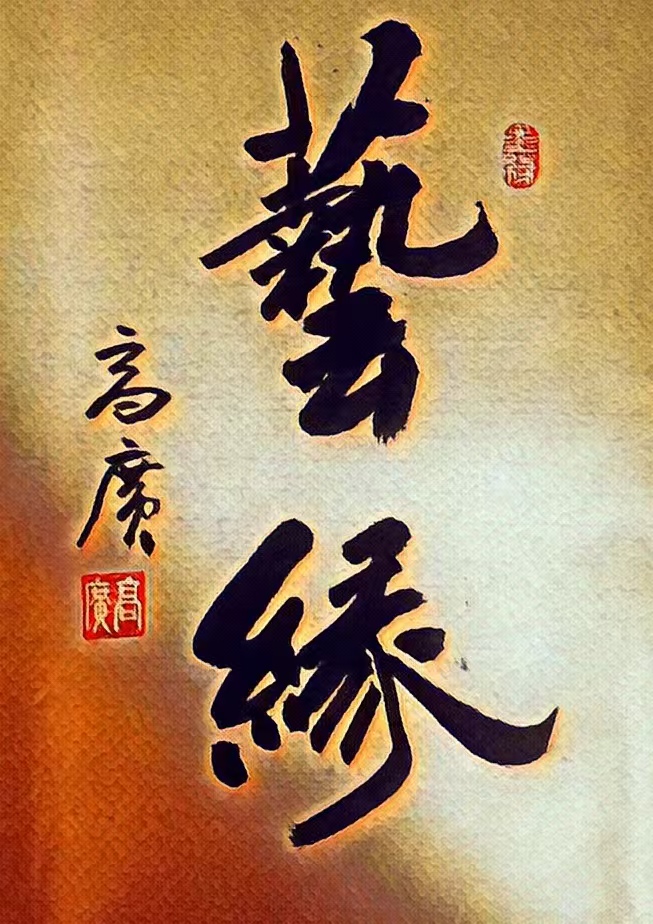 藝緣
高廣
高廣